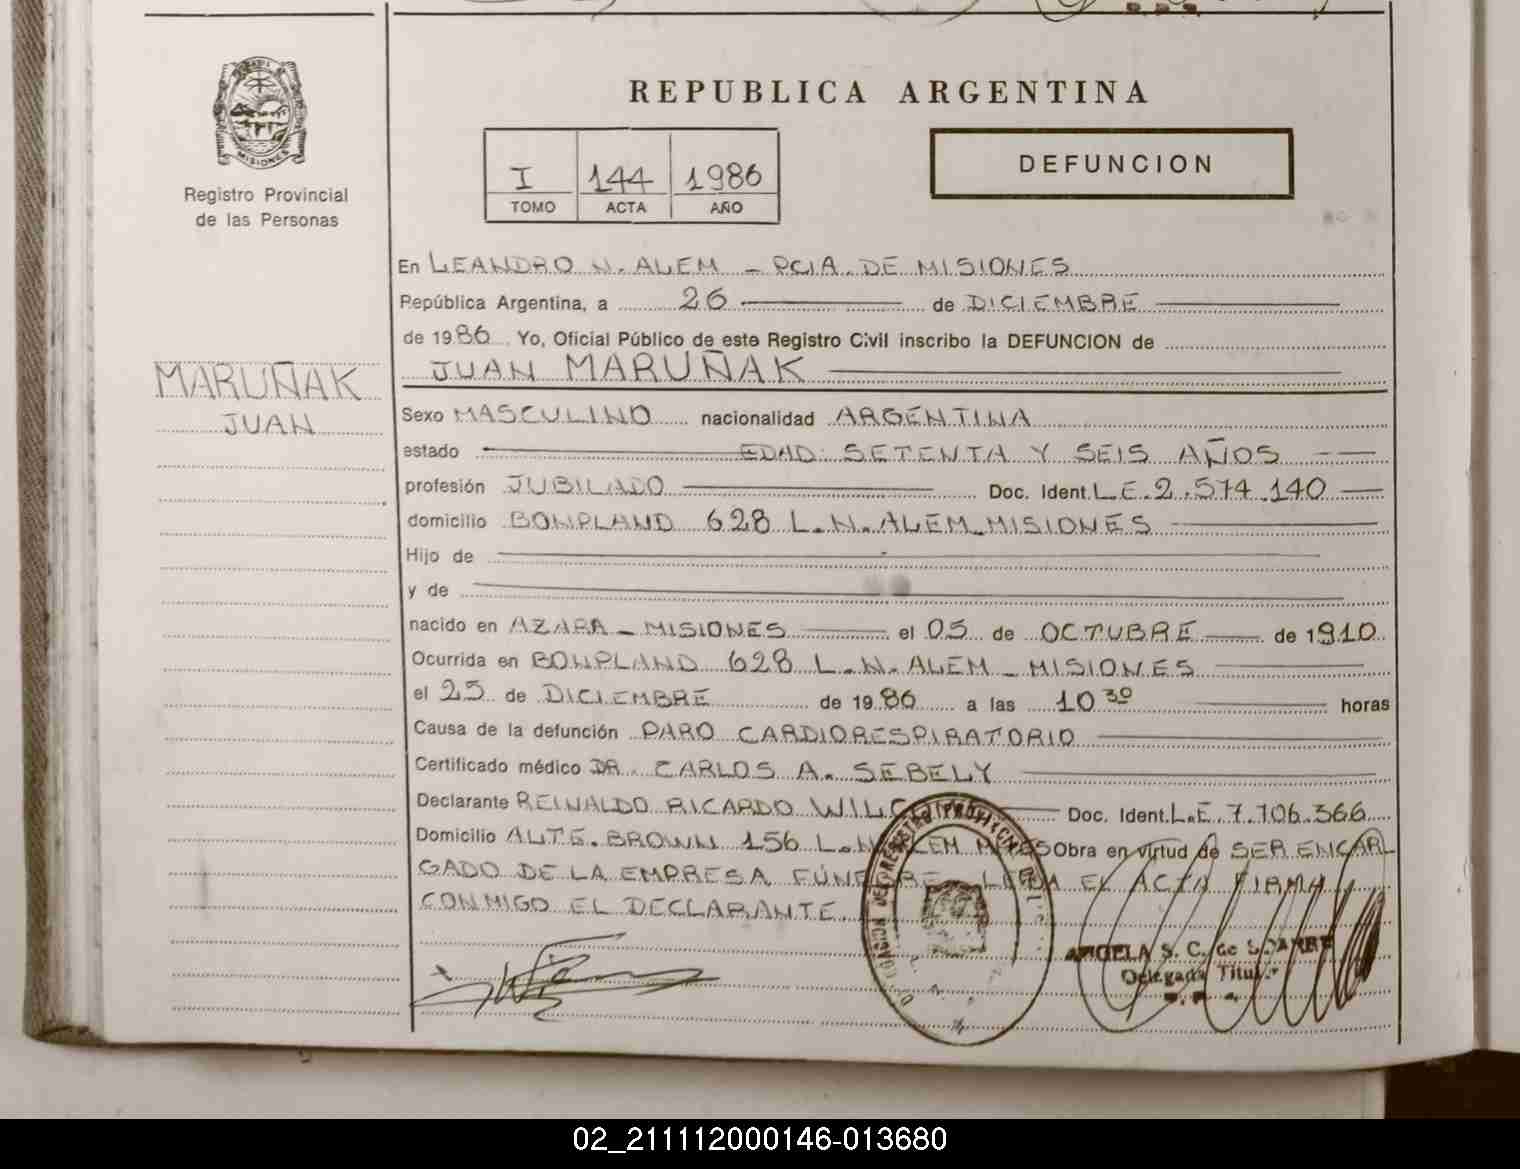 MISIONES
Registro Provincial
de las Personas
REPUBLICA ARGENTINA
I 144 1986
TOMO ACTA AÑO
DEFUNCION
En LEANDRO N. ALEM - PCIA. DE MISIONES
República Argentina, a 26 de DICIEMBRE
de 1986. Yo, Oficial Público de este Registro Civil inscribo la DEFUNCION de
JUAN MARUÑAK
MARUÑAK
JUAN
Sexo MASCULINO nacionalidad ARGENTINA
estado EDAD: SETENTA Y SEIS AÑOS
profesión JUBILADO Doc. Ident. L.E. 2.574.140
domicilio BONPLAND 628 L.N. ALEM-MISIONES
Hijo de
y de
nacido en AZARA - MISIONES el 05 de OCTUBRE de 1910
Ocurrida en BONPLAND 628 L.N. ALEM - MISIONES
el 25 de DICIEMBRE de 1986 a las 10 30 horas
Causa de la defunción PARO CARDIORESPIRATORIO
Certificado médico DR. CARLOS A. SEBELY
Declarante REINALDO RICARDO Doc. Ident. L.E. 7.706.366
Domicilio ALTE. BROWN 156 L.N. ALEM Obra en virtud de SER ENCAR
GADO DE LA EMPRESA FÚNEBRE. LEIDA EL ACTA FIRMA
CONMIGO EL DECLARANTE.
ANGELA S. C. de
Delegada Titular
02_211112000146-013680